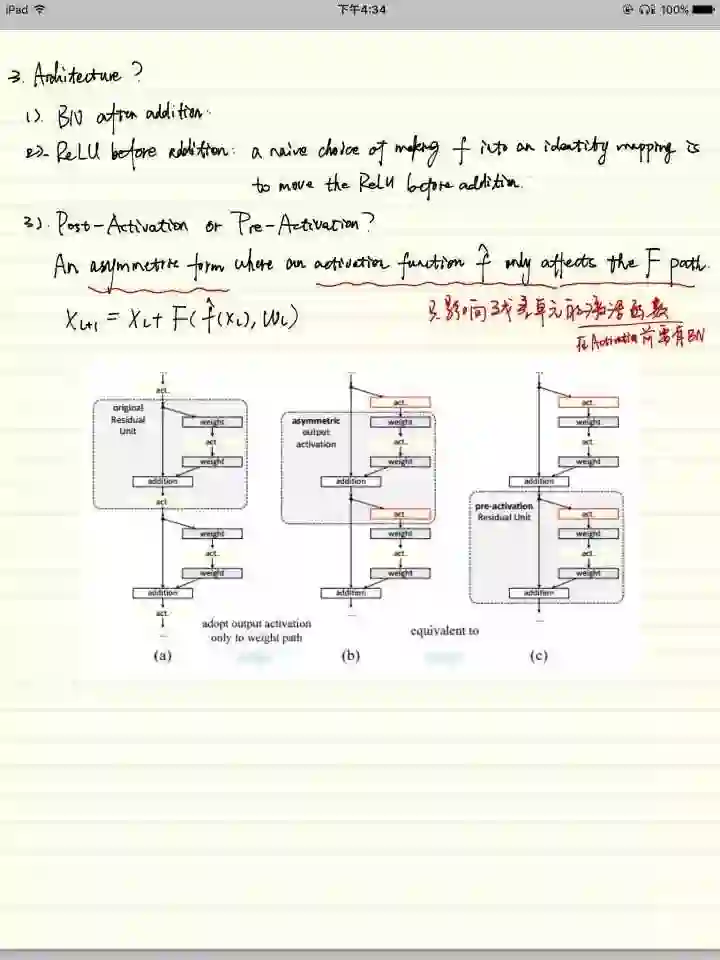 iPad
下午4:34
100%
3. Architecture ?
1). BN after addition.
2). ReLU before addition: a naive choice of making f into an identity mapping is
to move the ReLU before addition.
3). Post-Activation or Pre-Activation?
An asymmetric form where an activation function f̂ only affects the F path.
X_{L+1} = X_L + F(f̂(X_L), W_L)
只影响残差单元的激活函数
在Activation前要有BN
...
act.
original
Residual
Unit
weight
act.
weight
addition
act.
weight
act.
weight
addition
act.
...
(a)
adopt output activation
only to weight path
...
act.
asymmetric
output
activation
weight
act.
weight
addition
act.
weight
act.
weight
addition
...
(b)
equivalent to
...
act.
weight
act.
weight
addition
pre-activation
Residual Unit
act.
weight
act.
weight
addition
...
(c)